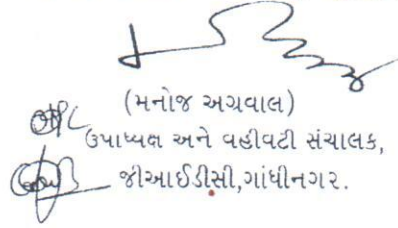 (મનોજ અગ્રવાલ)
ઉપાધ્યક્ષ અને વહીવટી સંચાલક,
જીઆઈડીસી,ગાંધીનગર.